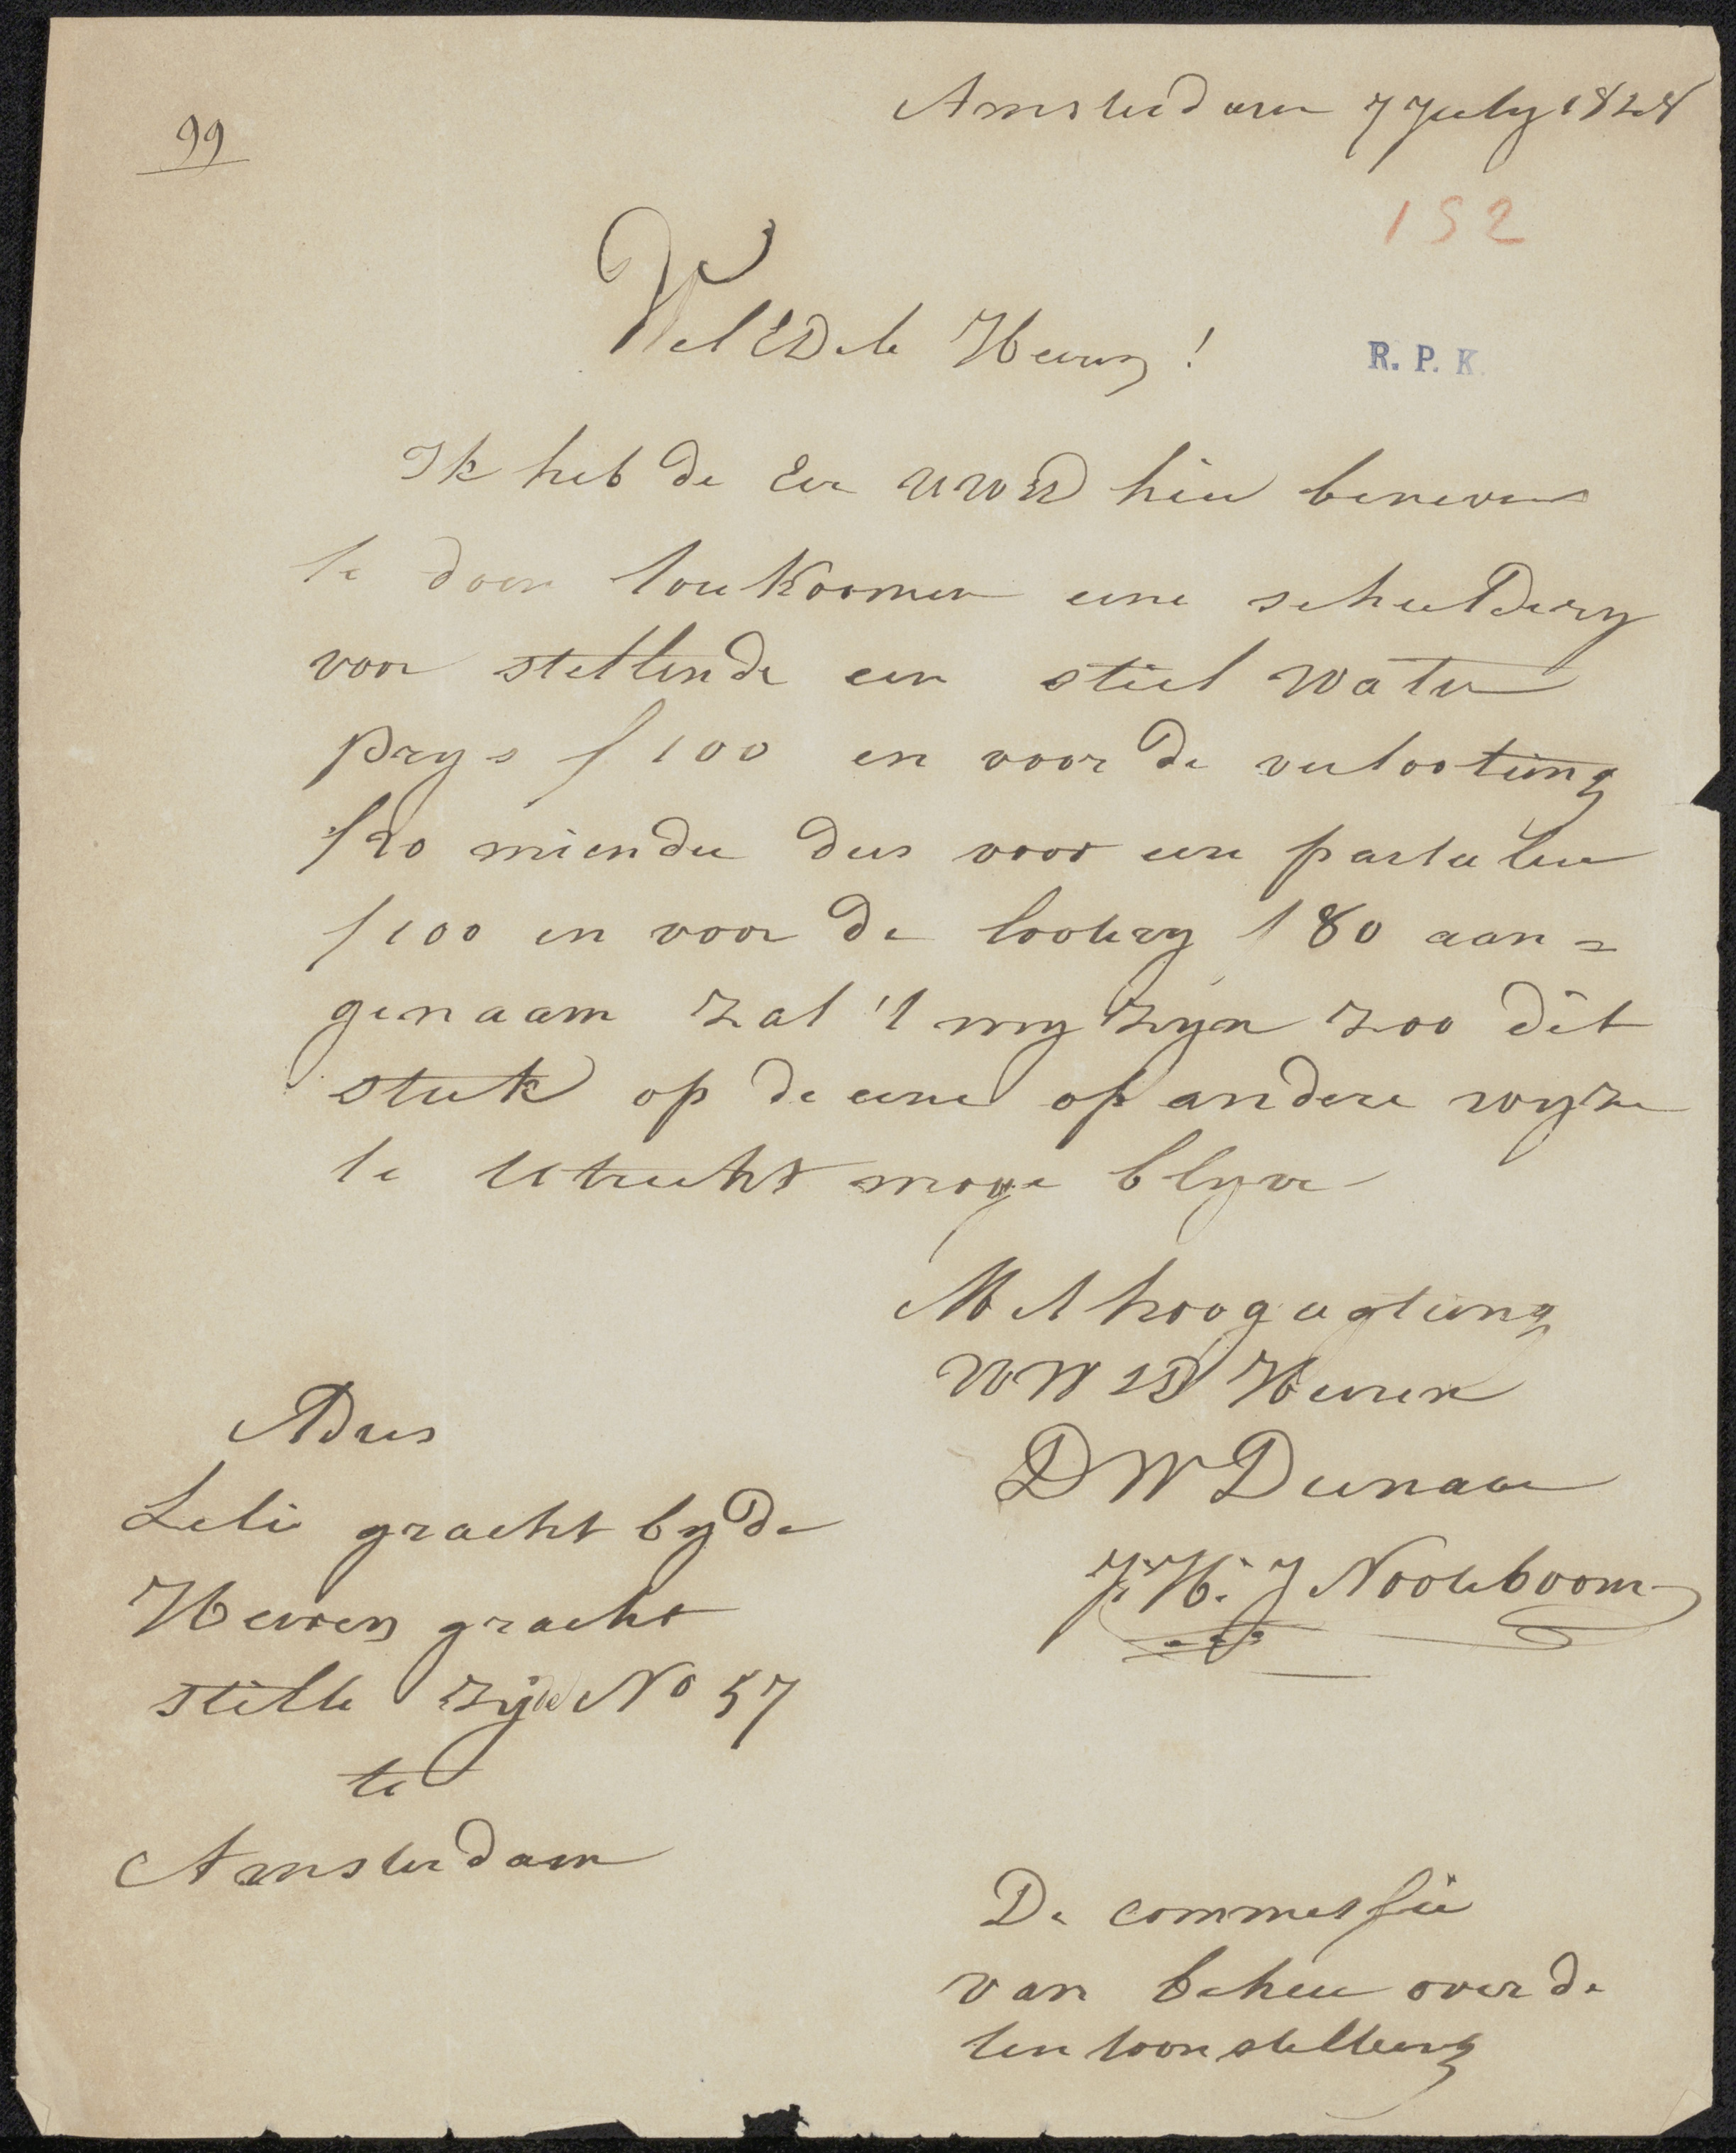 99
Amsterdam 7 July 1828
152
Wel EDele Heeren!
R. P. K.
Ik heb de Eer UWED hier benevens
te doen toekoomen eene schildery
voor stellende een stiel water
prys ƒ 100 en voor de verlooting
ƒ20 miender dus voor een partulier
ƒ100 en voor de lootery ƒ80 aan =
genaam zal 't my zyn zoo dit
stuk op de eene of andere wyze
te Utrecht moge blyve
Met hoogagting
UWED Heeren
DW Dienaar
J. H. J Nooteboom
Adres
Lelie gracht by de
Heeren gracht
stille zijde No 57
te
Amsterdam
De commissie
van beheer over de
ten toon stelling